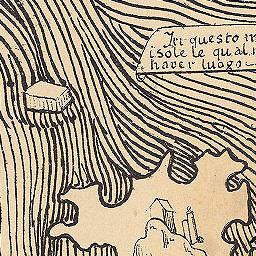 In questo m
isole le qual.
haver luogo